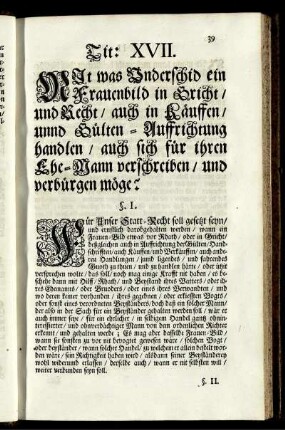 39
Tit: XVII.
Mit was Underschid ein
Frauenbild in Gricht /
und Recht / auch in Käuffen /
unnd Gülten = Auffrichtung
handlen / auch sich für ihren
Ehe=Mann verschreiben / und
verbürgen möge?
§. I.
Für Unser Statt=Recht soll gesetzt seyn /
und ernstlich darobgehalten werden / wann ein
Frauen=Bild etwas vor Rhath / oder in Gricht /
deßgleichen auch in Auffrichtung der Gülten / Hand-
schrifften / auch Käuffen und Verkäuffen / auch an-
dern Handlungen / umb ligendes / und fahrendes
Gueth zu thuen / und zu handlen hätte / oder ichts
versprechen wolte / das soll / noch mag einige Krafft nit haben / es be-
schehe dann mit Hülff / Rhath / und Beystand ihres Vatters / oder ih-
res Ehemanns / oder Bruders / oder eines ihres Verwandten / und
wo deren keiner vorhanden / ihres gegebnen / oder erkießten Vogts /
oder sonst eines verordneten Beyständers, doch daß ein solcher Mann /
der also in der Sach für ein Beyständer gehalten werden soll / wär es
auch immer seye / für ein ehrlicher / in selbigem Handel gantz ohnin-
teressierter / und ohnverdächtiger Mann von dem ordenlichen Richter
erkennt / und gehalten werde ; Es mag aber dasselbe Frauen=Bild /
wann sie sonsten zu vor nit bevogtet gewesen wäre / solcher Vogt /
oder Beyständer / wann solcher Handel / zu welchem er allein erbetten wor-
den wäre / sein Richtigkeit haben wird / alsdann seiner Beyständerey
wohl widerumb erlassen / derselbe auch / wann er nit selbsten will /
weiter verbunden seyn soll.
§. II.